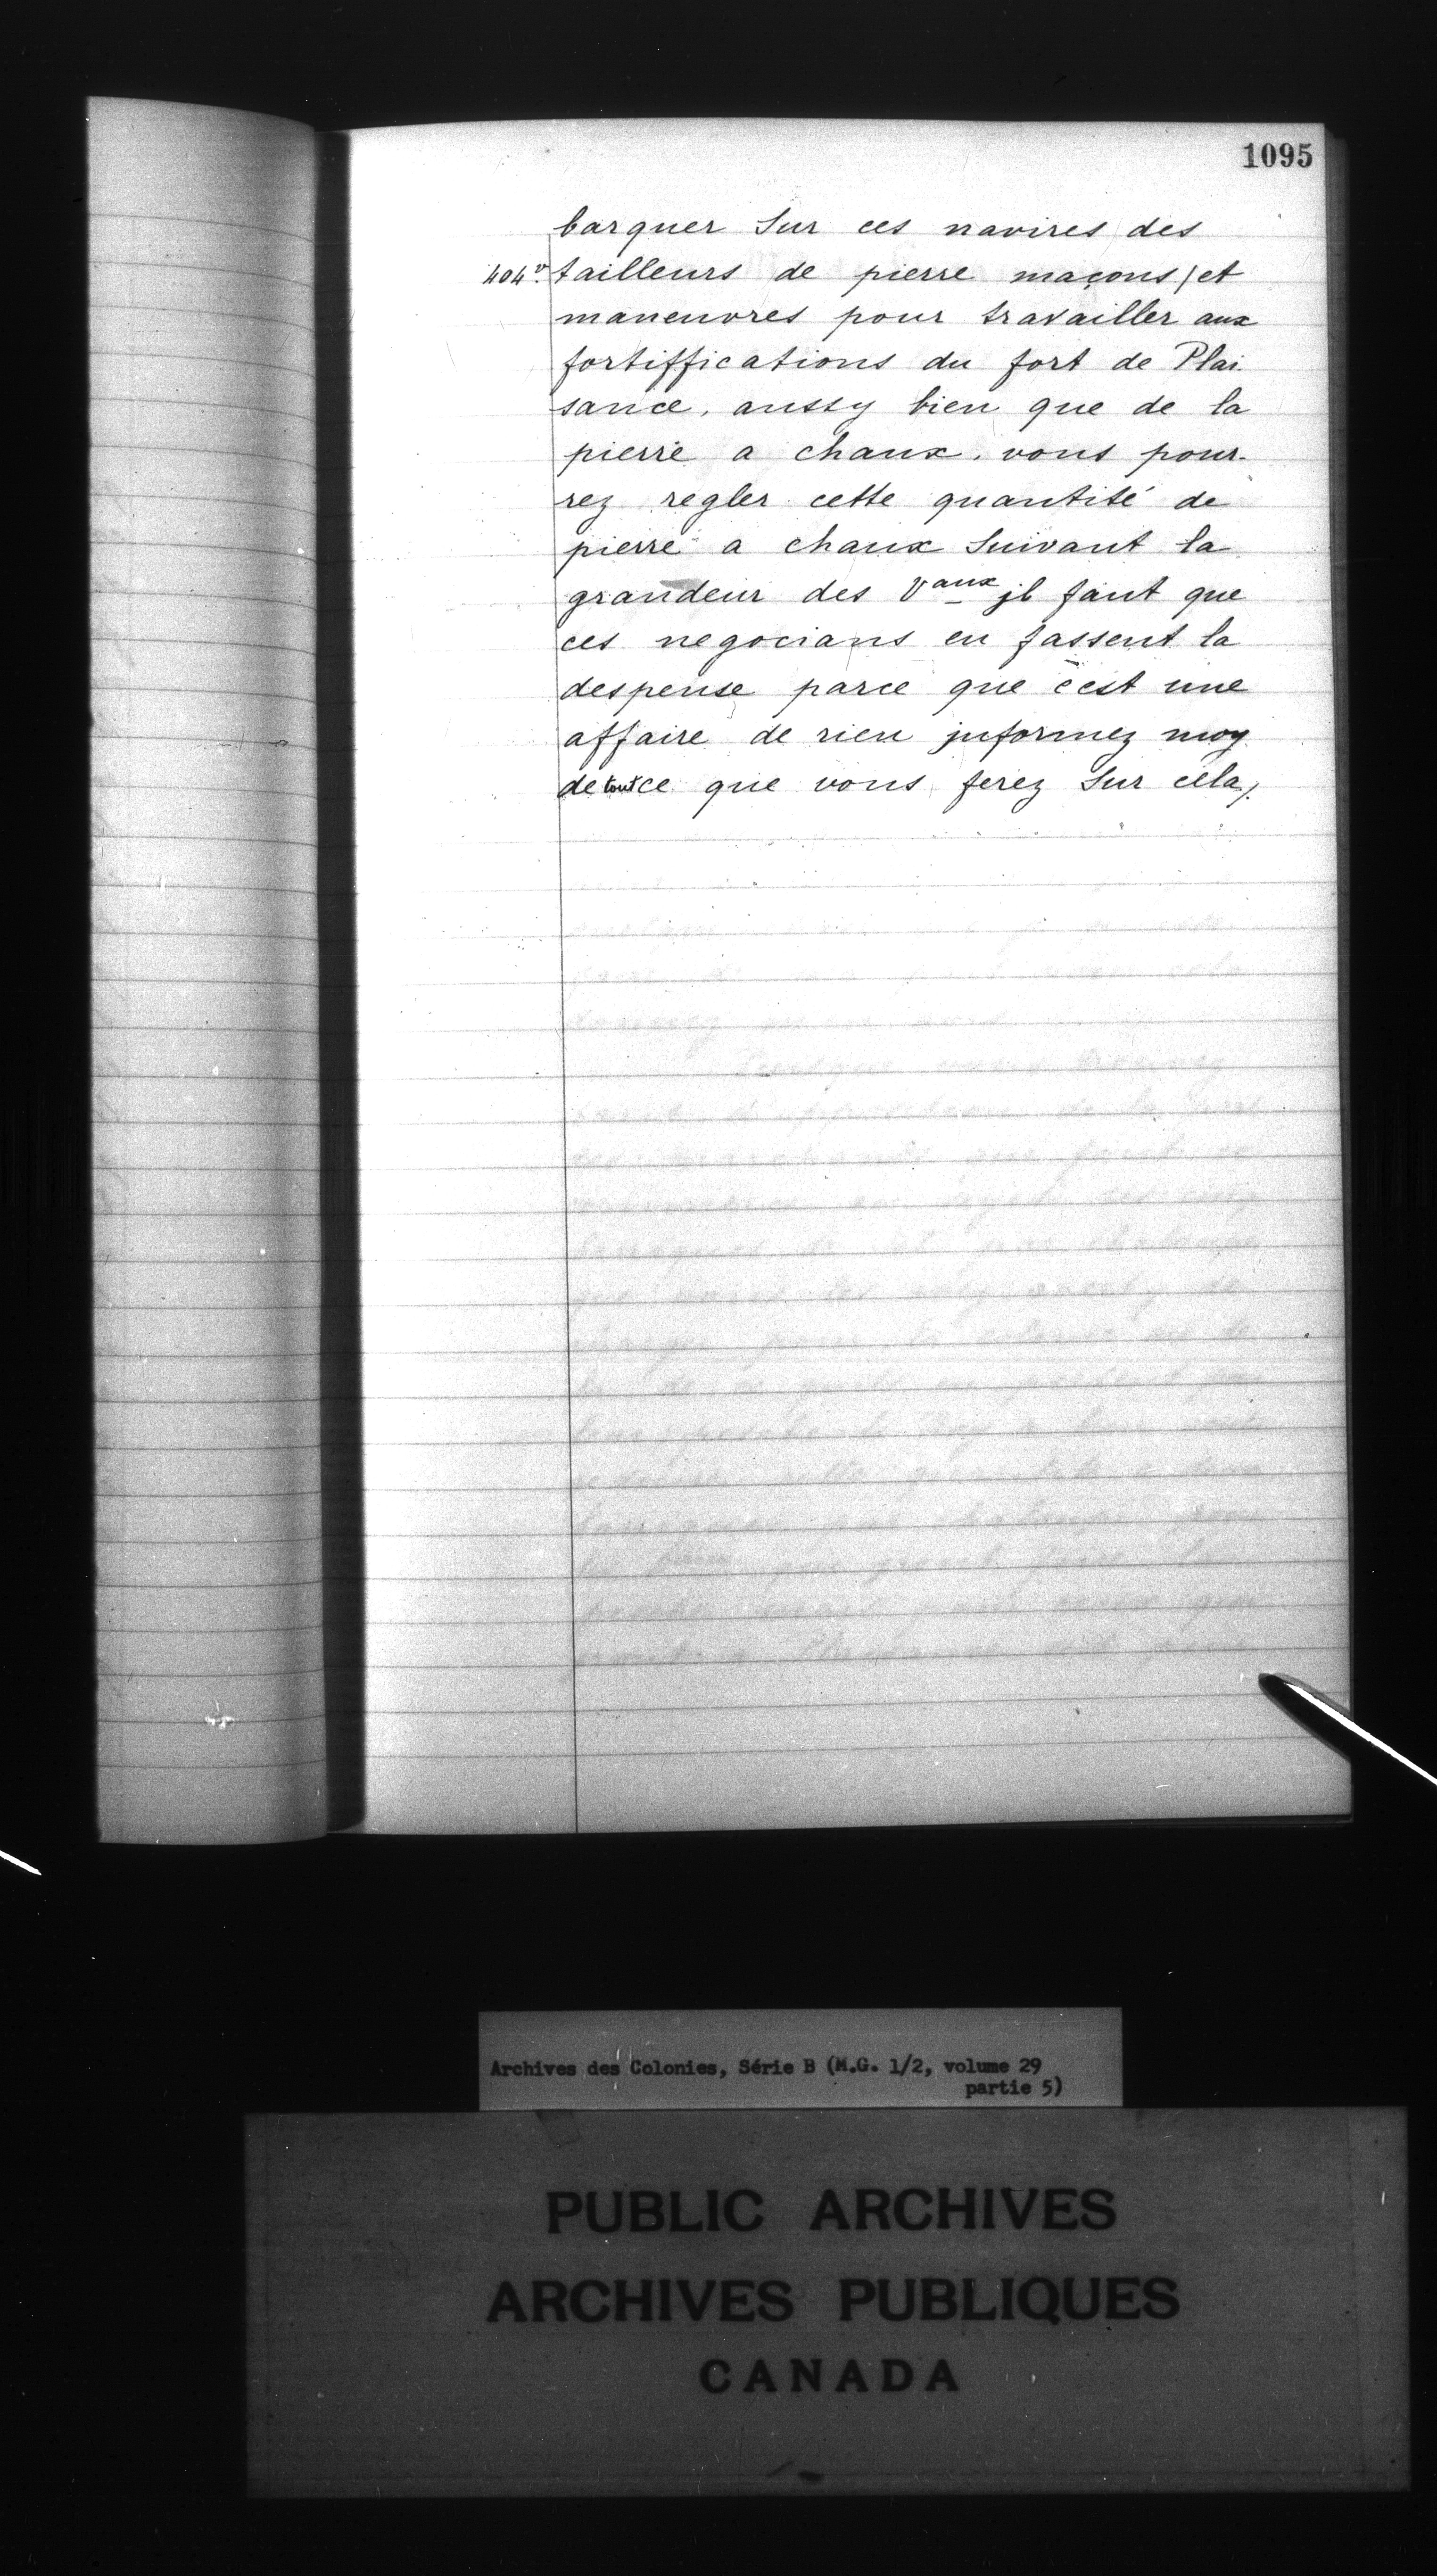 1095
barquer Sur ces navires des
404v. tailleurs de pierre maçons/et
maneuvres pour travailler aux
fortiffications du fort de Plai
sance, aussy bien que de la
pierre a chaux. vous pour-
rez regler cette quantité de
pierre a chaux Suivant la
grandeur des Vaux jl faut que
ces negocians en fassent la
despense parce que c'est une
affaire de rien jnformez moy
de tout ce que vous ferez Sur cela/.
Archives des Colonies, Série B (M.G. 1/2, volume 29
partie 5)
PUBLIC ARCHIVES
ARCHIVES PUBLIQUES
CANADA